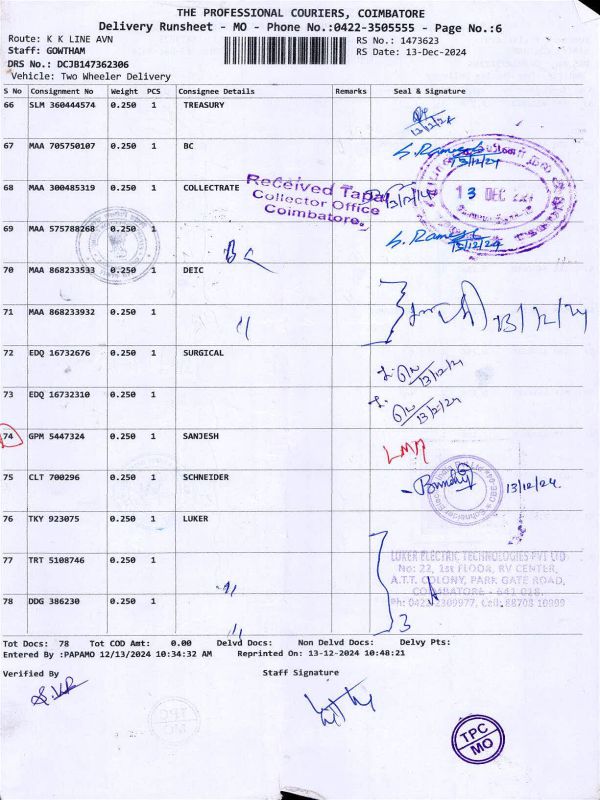 THE PROFESSIONAL COURIERS, COIMBATORE
Delivery Runsheet - MO - Phone No.:0422-3505555 - Page No.:6
Route: K K LINE AVN
RS No.: 1473623
Staff: GOWTHAM
RS Date: 13-Dec-2024
DRS No.: DCJB147362306
Vehicle: Two Wheeler Delivery
S No Consignment No Weight PCS Consignee Details Remarks Seal & Signature
66 SLM 360444574 0.250 1 TREASURY
13/12/24
67 MAA 705750107 0.250 1 BC
S. Ramesh
13/12/24
68 MAA 300485319 0.250 1 COLLECTRATE
Received Tapal
Collector Office
Coimbatore.
13/12/24
13 DEC 2024
69 MAA 575788268 0.250 1
BC
S. Ramesh
13/12/24
70 MAA 868233533 0.250 1 DEIC
71 MAA 868233932 0.250 1 "
13/12/24
72 EDQ 16732676 0.250 1 SURGICAL
13/12/24
73 EDQ 16732310 0.250 1
13/12/24
74 GPM 5447324 0.250 1 SANJESH
LMM
75 CLT 700296 0.250 1 SCHNEIDER
13/12/24.
76 TKY 923075 0.250 1 LUKER
77 TRT 5108746 0.250 1 "
LUKER ELECTRIC TECHNOLOGIES PVT LTD
No: 22, 1st FLOOR, RV CENTER,
A.T.T. COLONY, PARK GATE ROAD,
COIMBATORE - 641 018.
78 DDG 386230 0.250 1 "
3
Tot Docs: 78 Tot COD Amt: 0.00 Delvd Docs: Non Delvd Docs: Delvy Pts:
Entered By :PAPAMO 12/13/2024 10:34:32 AM Reprinted On: 13-12-2024 10:48:21
Verified By Staff Signature
TPC
MO